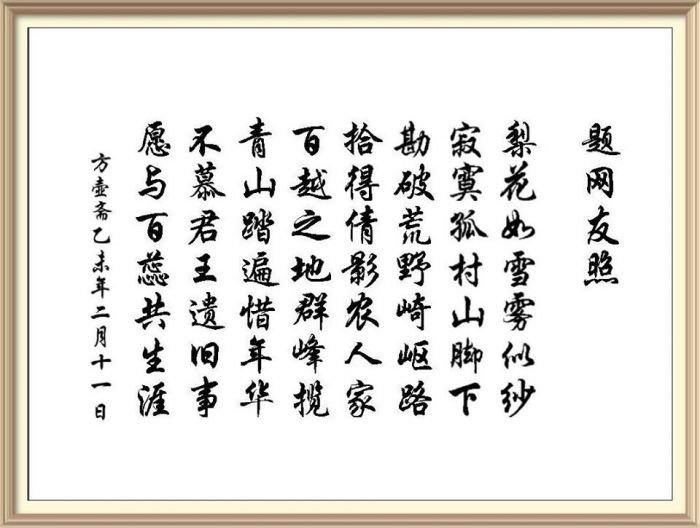 题网友照
梨花如雪雾似纱
寂寞孤村山脚下
勘破荒野崎岖路
拾得倩影农人家
百越之地群峰揽
青山踏遍惜年华
不慕君王遗旧事
愿与百蕊共生涯
方壶斋乙未年二月十一日